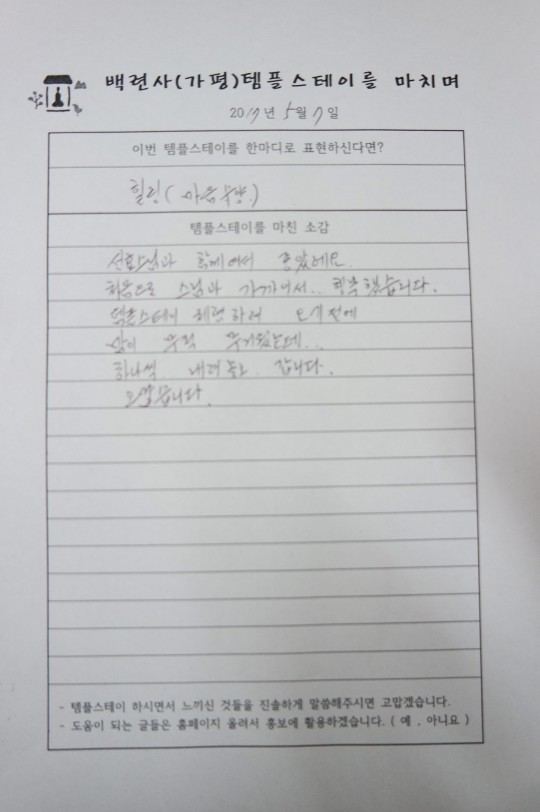 백련사(가평)템플스테이를 마치며
2017년 5월 7일
이번 템플스테이를 한마디로 표현하신다면?
힐링(마음수양)
템플스테이를 마친 소감
함께여서 좋았네요
처음으로 스님과 가까이서.. 행복했습니다.
템플스테이 체험하러 오기전에
삶이 무척 무거웠는데...
하나씩 내려놓고 갑니다.
고맙습니다.
- 템플스테이 하시면서 느끼신 것들을 진솔하게 말씀해주시면 고맙겠습니다.
- 도움이 되는 글들은 홈페이지 올려서 홍보에 활용하겠습니다. ( 예 , 아니요 )